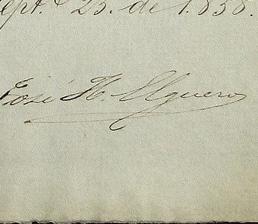 ept.e 25. de 1.858.
José H. Elguero